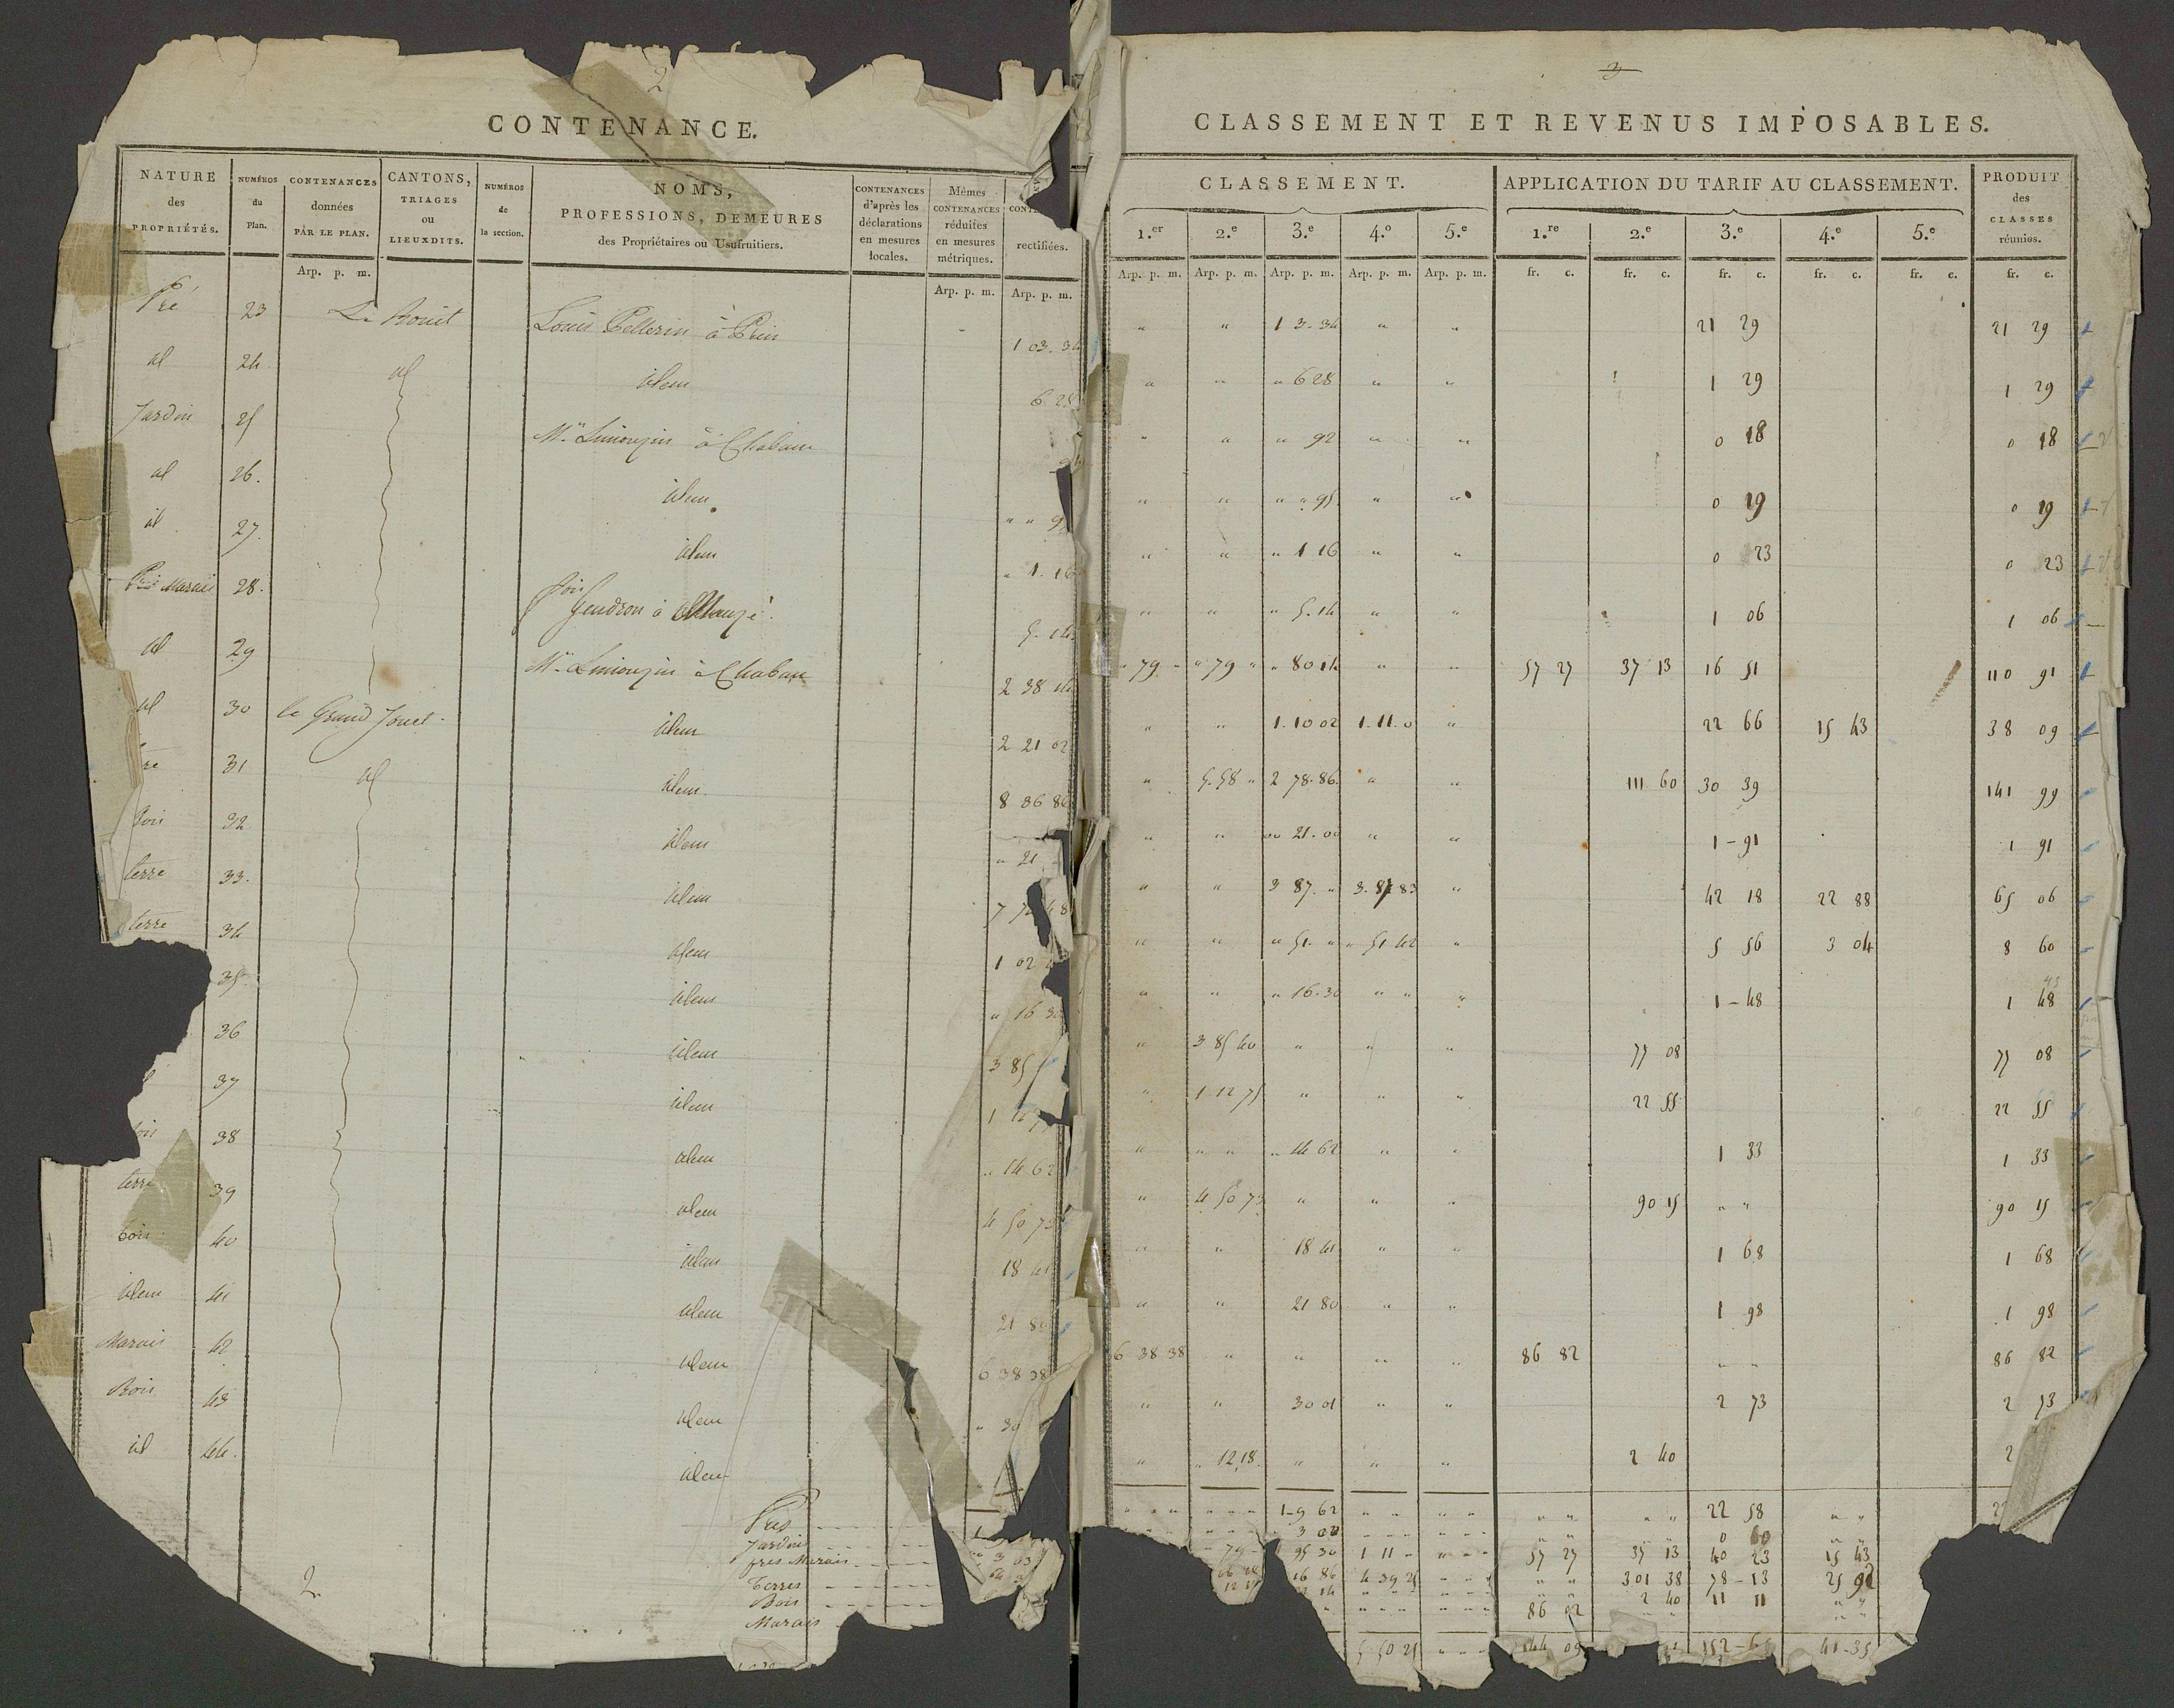 2
CONTENANCE.
NATURE des PROPRIÉTÉS.
NUMÉROS du Plan.
CONTENANCES données PAR LE PLAN.
CANTONS, TRIAGES ou LIEUXDITS.
NUMÉROS de la section.
NOMS, PROFESSIONS, DEMEURES des Propriétaires ou Usufruitiers.
CONTENANCES d'après les déclarations en mesures locales.
Mêmes CONTENANCES réduites en mesures métriques.
rectifiées.
Arp. p. m. Arp. p. m. Arp. p. m.
Pré 23 Louis Pellerin à 1 03. 34
id 24. id idem 6 28
Jardin 25 Mr. Limouzin à Chaban
id 26. idem
id 27. idem " 1. 16
Pré Marais 28. Gendron à Mauzé 5. 14
id 29 Mr. Limouzin à Chaban 2 38 14
id 30 le Grand Jouet. idem 2 21 02
31 id idem 8 36 86
32 idem " 21
terre 33. idem
terre 34 idem 1 02
35 idem " 16 30
36 idem 3 85
37 idem
38 idem " 14 62
terre 39 idem 4 50 73
bois 40 idem 18 41
idem 41 idem 21 80
Marais 42 idem 6 38 38
Bois 43 idem " 30
id 44. idem
Prés
Jardin
prés Marais
Terres
Bois
Marais
2
3
CLASSEMENT ET REVENUS IMPOSABLES.
CLASSEMENT. APPLICATION DU TARIF AU CLASSEMENT. PRODUIT des CLASSES réunies.
1.er 2.e 3.e 4.e 5.e 1.re 2.e 3.e 4.e 5.e
Arp. p. m. Arp. p. m. Arp. p. m. Arp. p. m. Arp. p. m. fr. c. fr. c. fr. c. fr. c. fr. c. fr. c.
" " 1 3. 34 " " 21 29 21 29
" " " 6 28 " " 1 29 1 29
" " " 92 " " 0 18 0 18
" " " " 95 " " 0 19 0 19
" " " 1 16 " " 0 23 0 23
" " " 5. 14 " " 1 06 1 06
" 79 " " 79 " " 80 14 " " 57 27 37 13 16 51 110 91
" " 1. 10 02 1. 11. 0 " 22 66 15 43 38 09
" 5. 58 " 2 78. 86. " " 111 60 30 39 141 99
" " 21. 00 " " 1 - 91 1 91
" " 3 87. " 3. 87 83 " 42 18 22 88 65 06
" " " 51. " " 51 42 " 5 56 3 04 8 60
" " " 16. 30 " " " 1 - 48 1 48
" 3 85 40 " " " 77 08 77 08
" 1 12 75 " " " 22 55 22 55
" " " " 14 62 " " 1 33 1 33
" 4 50 73 " " " 90 15 " " 90 15
" " 18 41 " " 1 68 1 68
" " 21 80 " " 1 98 1 98
6 38 38 " " " " 86 82 " " 86 82
" " 30 01 " " 2 73 2 73
" " 12. 18. " " " 2 40 2
1 - 9 62 22 58
3 03 0 60
79 95 30 1 11 - 57 27 37 13 40 23 15 43
16 86 4 39 25 301 38 78 - 13 25 92
2 40 11 11
86 82
5 50 25 144 09 41 - 35